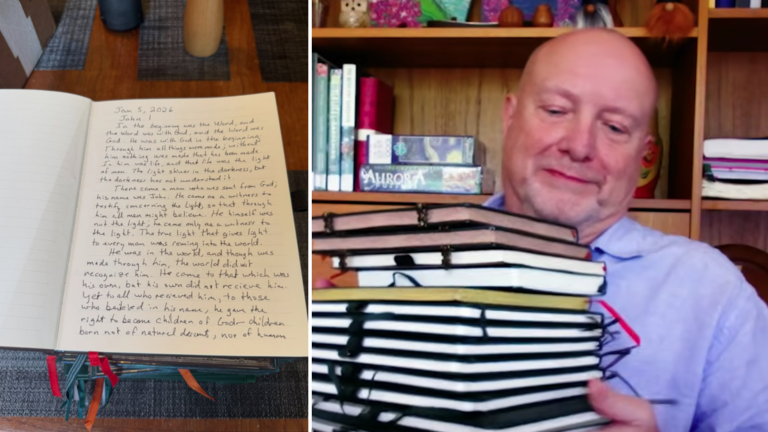 Jan 5, 2026
John 1
In the beginning was the Word, and
the Word was with God, and the Word was
God. He was with God in the beginning.
Through him all things were made; without
him nothing was made that has been made.
In him was life, and that life was the light
of men. The light shines in the darkness, but
the darkness has not understood it.
There came a man who was sent from God;
his name was John. He came as a witness to
testify concerning the light, so that through
him all men might believe. He himself was
not the light; he came only as a witness to
the light. The true light that gives light
to every man was coming into the world.
He was in the world, and though was
made through him, the world did not
recognize him. He came to that which was
his own, but his own did not recieve him.
Yet to all who recieved him, to those
who believed in his name, he gave the
right to become children of God— children
born not of natural descent, nor of human
AURORA